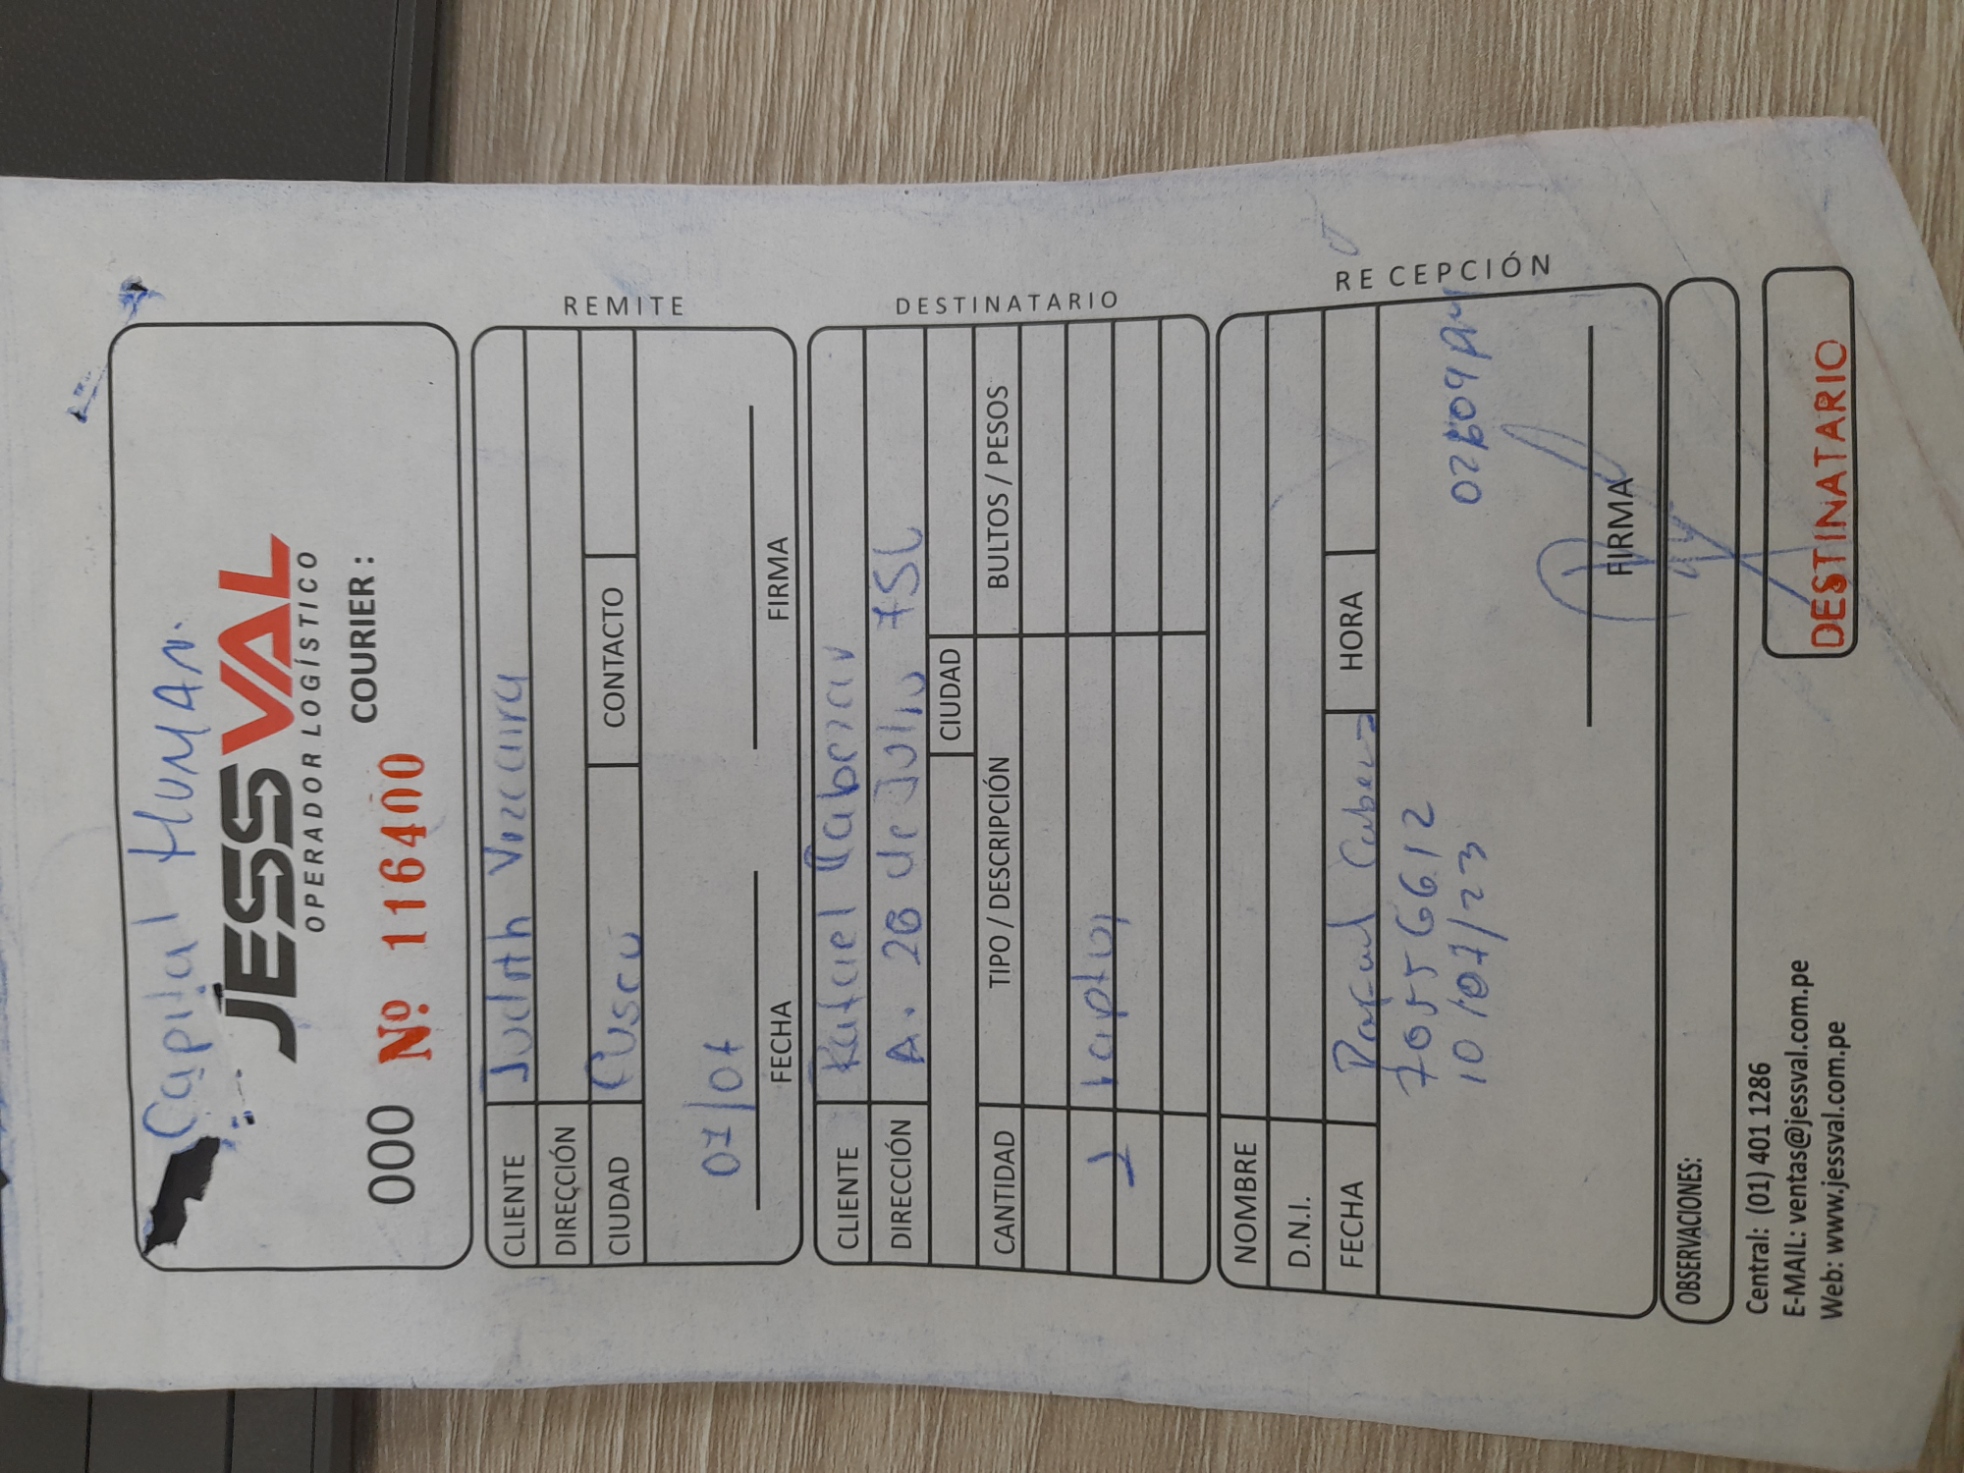 Capital HUMAN.
JESSVAL
OPERADOR LOGÍSTICO
COURIER :
000 Nº 116400
CLIENTE Judith
DIRECCIÓN
CIUDAD Cusco CONTACTO
07/07
FECHA FIRMA
REMITE
CLIENTE Rafael Cabezas
DIRECCIÓN A. 28 de Julio
CIUDAD
CANTIDAD TIPO / DESCRIPCIÓN BULTOS / PESOS
1 laptop
DESTINATARIO
NOMBRE
D.N.I.
FECHA Rafael Cabezas HORA
70556612
10/07/23
FIRMA
RECEPCIÓN
OBSERVACIONES:
Central: (01) 401 1286
E-MAIL: ventas@jessval.com.pe
Web: www.jessval.com.pe
DESTINATARIO